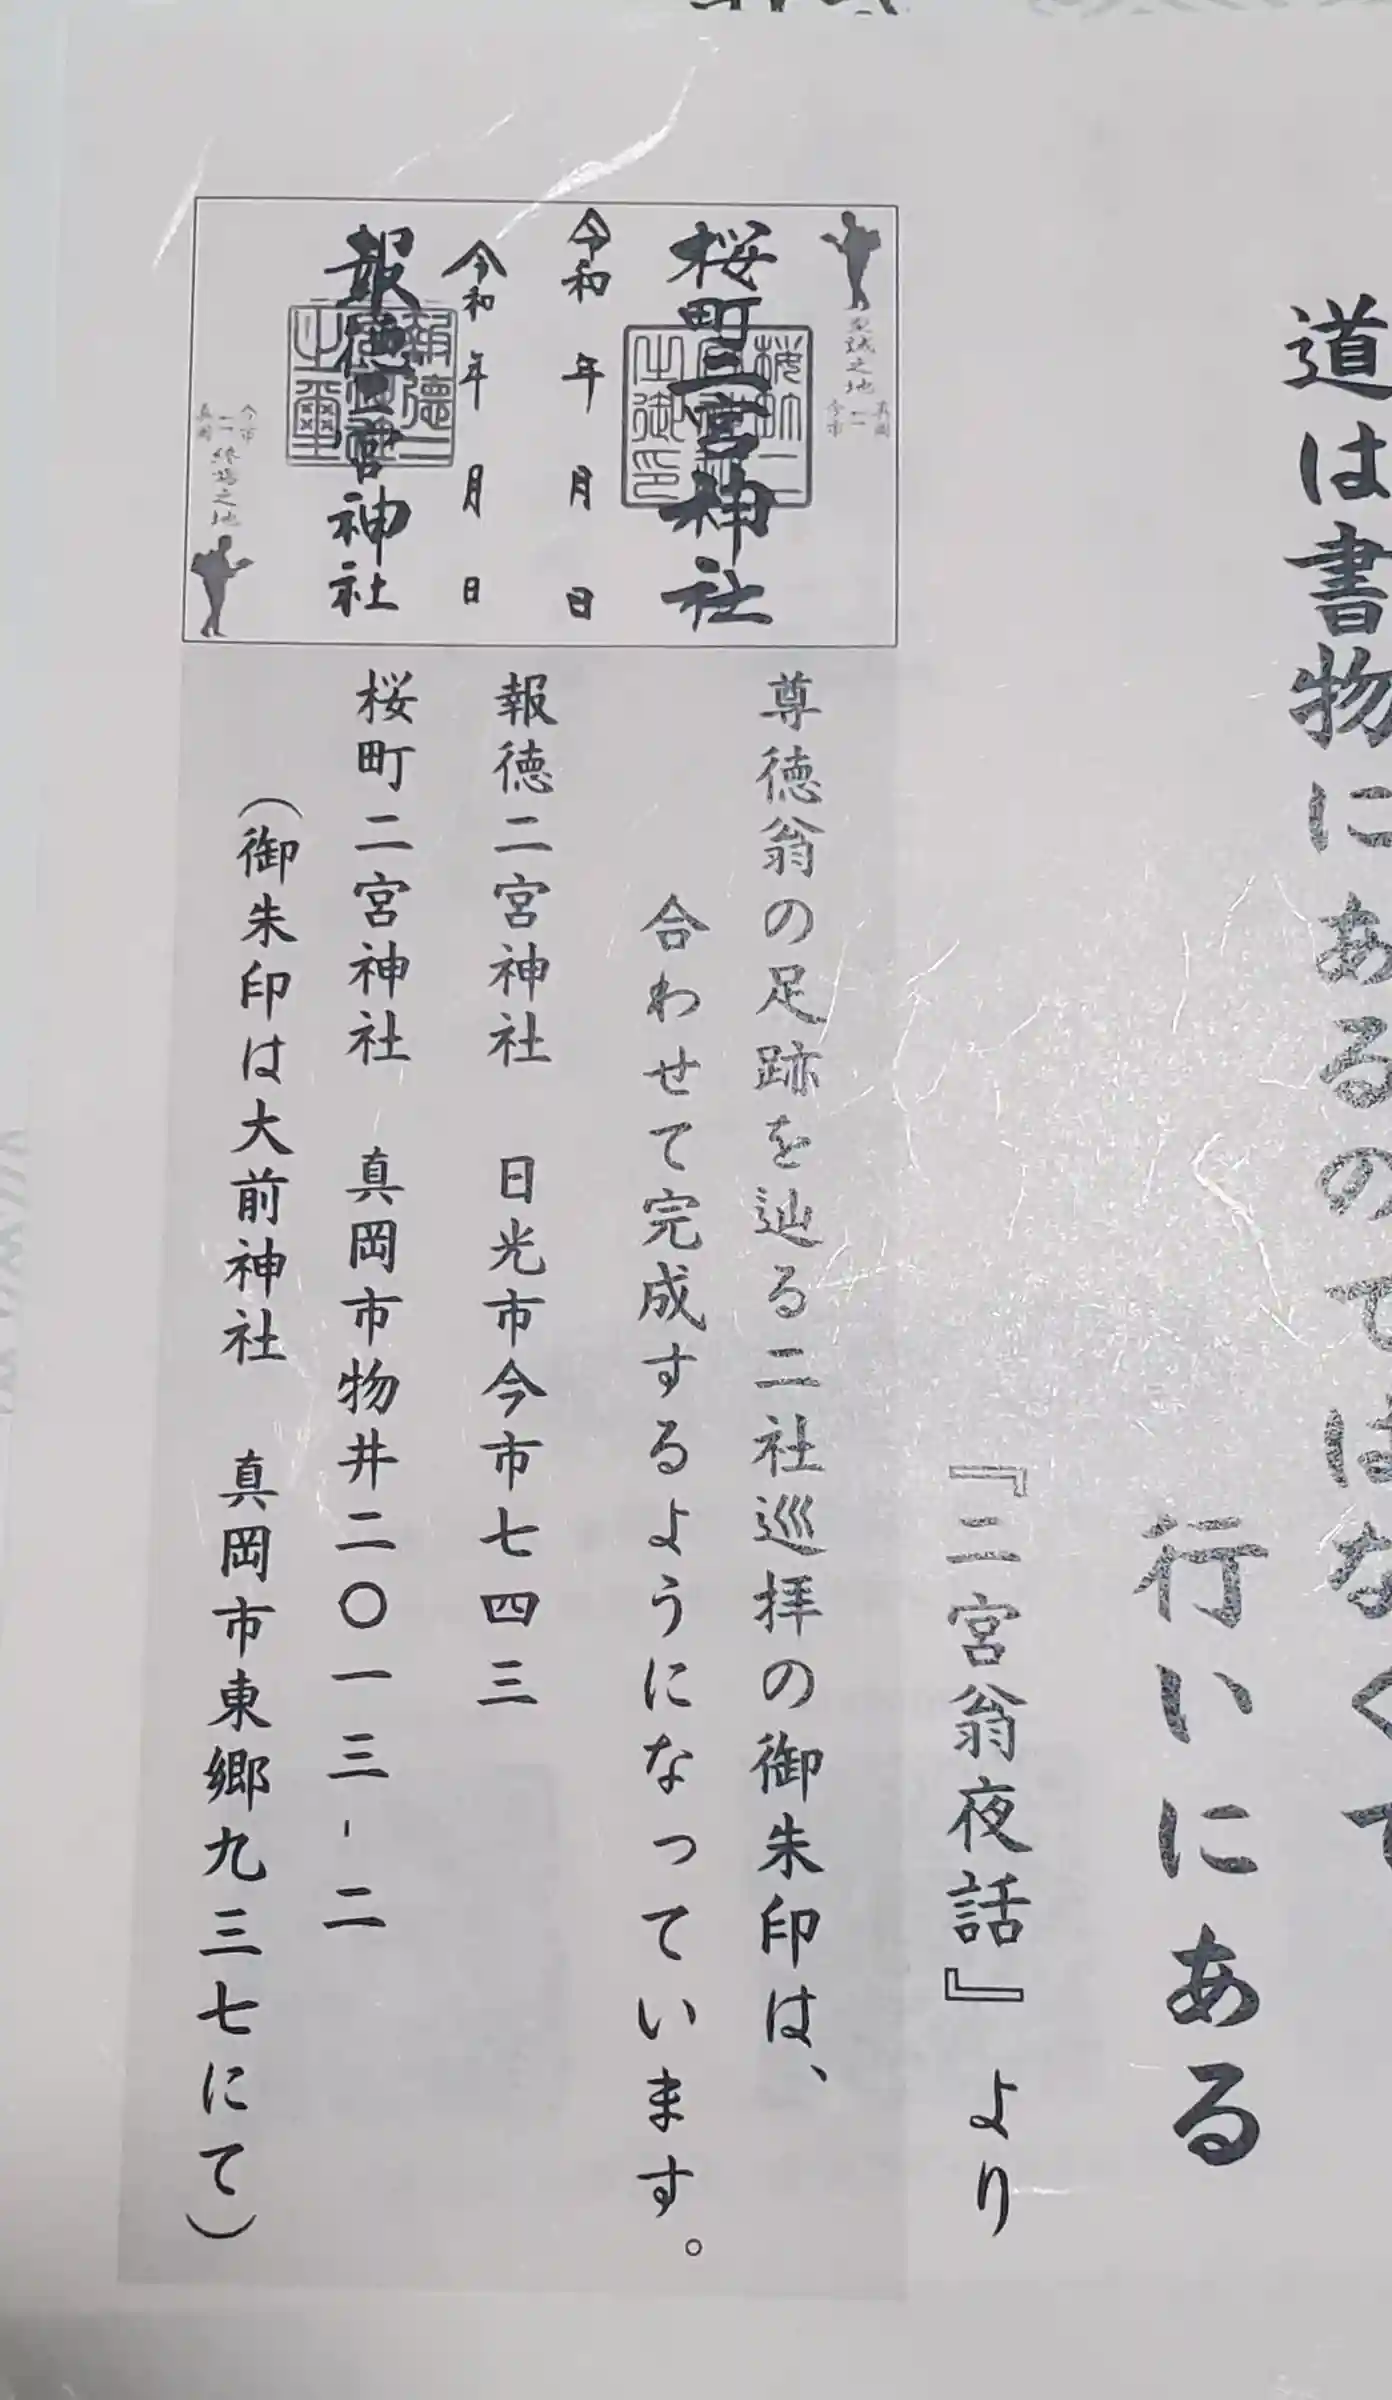 道は書物にあるのではなくて
行いにある
『二宮翁夜話』より
至誠之地
真岡
二
今市
桜町二宮神社
令和 年 月 日
令和 年 月 日
報徳二宮神社
今市
二
真岡
終焉之地
尊徳翁の足跡を辿る二社巡拝の御朱印は、
合わせて完成するようになっています。
報徳二宮神社 日光市今市七四三
桜町二宮神社 真岡市物井二〇一三-二
(御朱印は大前神社 真岡市東郷九三七にて)